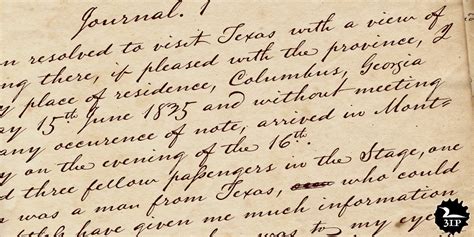 Journal. 1
n resolved to visit Texas with a view of
ing there, if pleased with the province, I
y place of residence, Columbus, Georgia
ay 15th June 1835 and without meeting
any occurence of note, arrived in Mont-
y on the evening of the 16th.
d three fellow passengers in the Stage, one
was a man from Texas, who could
have given me much information
was to my eyes
31P